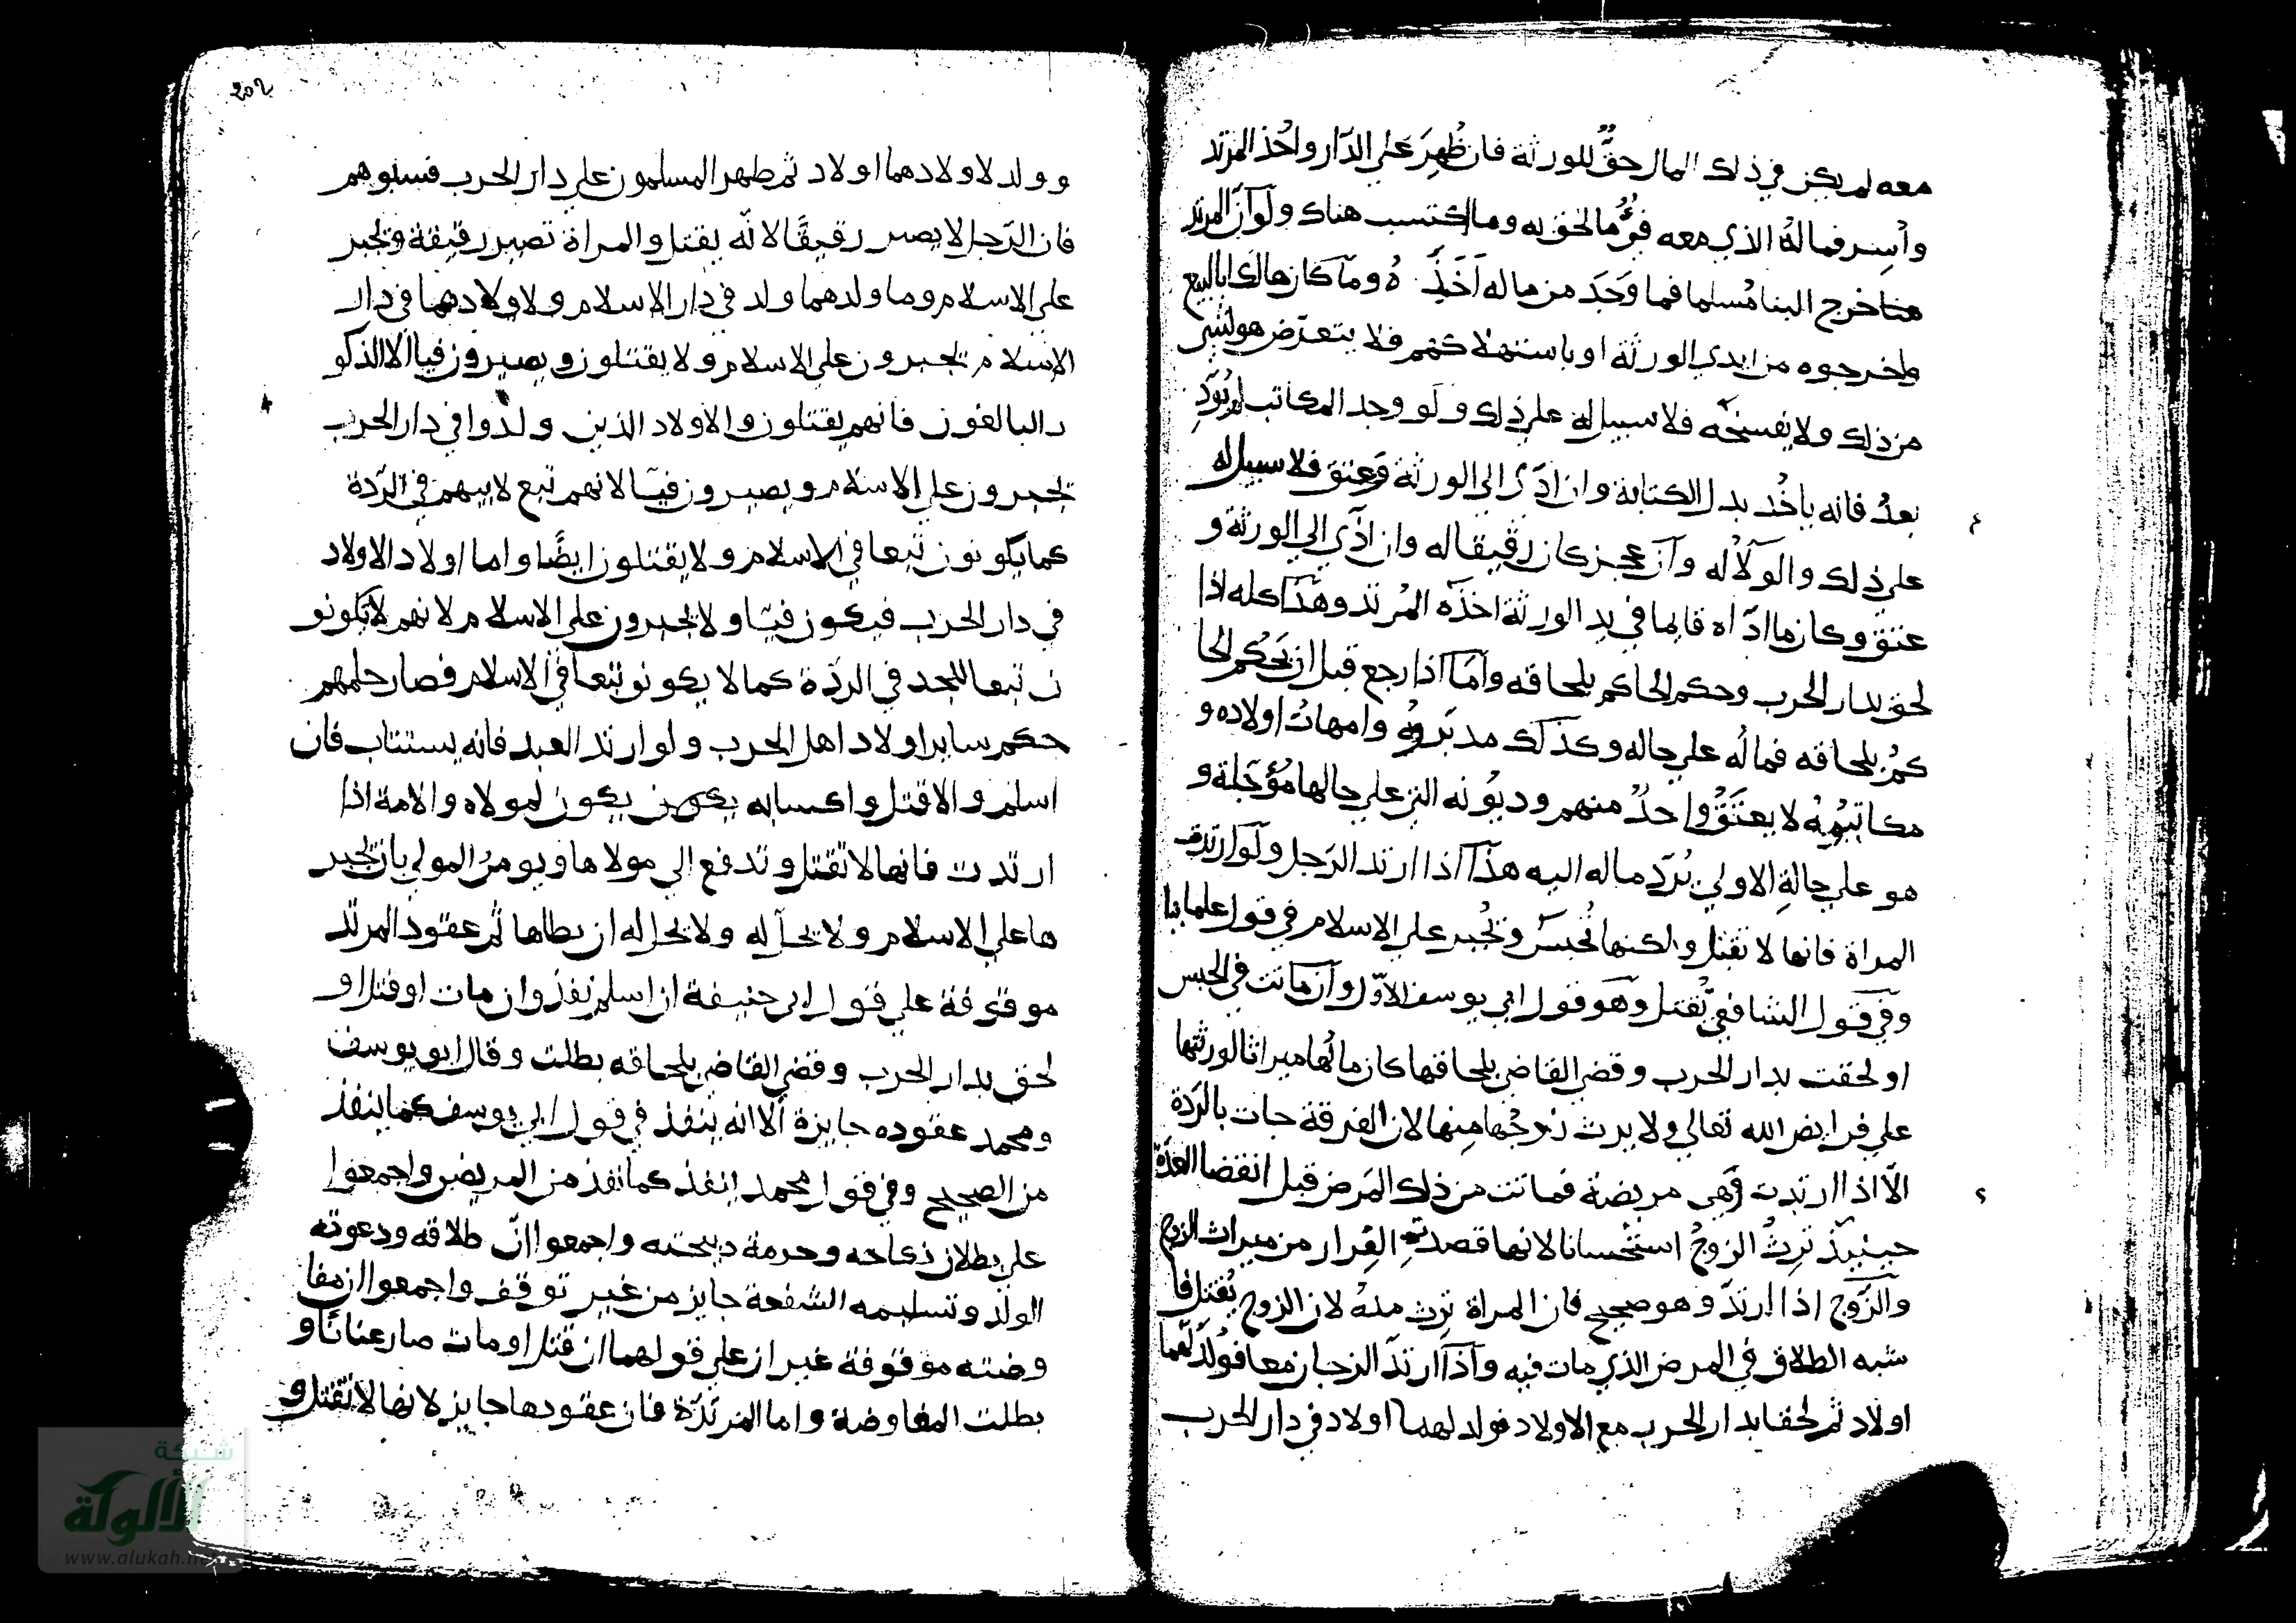 معه لم يكن في ذلك المال حقٌّ للورثة فان ظُهِرَ على الدّار واُخذ المرتد
واُسِر فمالهُ الذي معه فيْءٌ ما لحق به وما اكتسب هناك ولو ان المرتد
هنا خرج الينا مُسلما فما وَجَدَ من ماله اَخَذَهُ وما كان هالكا بالبيع
واخرجوه من ايدي الورثة او باستهلاكهم فلا يتعرّض هو لشي
من ذلك ولا يفسخه فلا سبيل له على ذلك ولو وجد المكاتب لم يُوَدِّ
بعدُ فانه ياخُد بدل الكتابة وان ادّى الى الورثة وعتق فلا سبيل له
على ذلك والولاْ له وان عجز كان رقيقا له وان ادّي الي الورثة و
عتق وكان ما ادّاه قايما في يد الورثة اخذه المُرتد وهذا كله اذا
لحق بدار الحرب وحكم الحاكم بلحاقه وامّا اذا رجع قبل ان يحكم الحا
كمُ بلحاقه فمالُه على حاله وكذلك مدبّروهُ وامهاتُ اولاده و
مكاتبوهُ لا يعتقُ واحدٌ منهم وديونه التي على حالها مُؤجّلة و
هو على حالةِ الاولي يُرَدّ ماله اليه هذا اذا ارتد الرّجل ولو ارتدت
المراة فانها لا تقتل ولكنها تُحبسُ وتُجبر على الاسلام في قول علماينا
وفي قول الشافعي تُقتل وهو قول ابي يوسف الاوّل وان ماتت في الحبس
او لحقت بدار الحرب وقضى القاضي بلحاقها كان مالُها ميراثا لورثتها
علي فرايض الله تعالي ولا يرث زوجُها منها لان الفرقة جات بالرّدة
الّا اذا ارتدت وهي مريضة فماتت من ذلك المرض قبل انقضا العدّة
حينيذ ترثُ الزوجُ استحسانا لانها قصدت الفِرار من ميراث الزوج
والزّوج اذا ارتدّ وهو صحيح فان المراة ترث منهُ لان الزوج يُقتل فا
شبه الطلاق في المرض الذي مات فيه واذا ارتدّ الزوجان معا فوُلد لهما
اولاد ثم لحقا بدار الحرب مع الاولاد فولد لهما اولاد في دار الحرب
202
وولد لاولادهما اولاد ثم ظهر المسلمون على دار الحرب فسبوهم
فان الرّجل لا يصير رقيقًا لانّه يقتل والمراة تصير رقيقة وتجبر
على الاسلام وما ولدهما ولد في دار الاسلام ولاولادهما في دار
الاسلام يجبرون على الاسلام ولا يقتلون ويصيرون فيا الا الذكو
ر البالغون فانهم يقتلون والاولاد الذين ولدوا في دار الحرب
يجبرون على الاسلام ويصيرون فيًا لانهم تبع لابيهم في الرّدة
كما يكونون تبعا في الاسلام ولا يقتلون ايضًا واما اولاد الاولاد
في دار الحرب فيكون فيًا ولا يجبرون على الاسلام لانهم لا يكونو
ن تبعا للجد في الردّة كما لا يكونو تبعا في الاسلام فصار حكمهم
حكم ساير اولاد اهل الحرب ولو ارتد العبد فانه يستتاب فان
اسلم والا قتل واكسابه يكون يكون لمولاه والامة اذا
ارتدت فانها لا تقتل وتدفع الي مولاها ويومرُ المولي بان يجبر
ها على الاسلام ولا يحل له ولا يحل له ان يطاها ثم عقود المرتد
موقوفة علي قول ابي حنيفة ان اسلم نفذ وان مات او قتل او
لحق بدار الحرب وقضى القاضي بلحاقه بطلت وقال ابو يوسف
ومحمد عقوده جايزة الا انه ينفذ في قول ابي يوسف كما ينفذ
من الصحيح وفي قول محمد ينفذ كما نفذ من المريض واجمعوا
على بطلان نكاحه وحرمة ذبيحته واجمعوا انّ طلاقه ودعوته
الولد وتسليمه الشفعة جايز من غير توقف واجمعوا ان مفا
وضته موقوفة غير ان على قولهما ان قتل او مات صار عنانا و
بطلت المفاوضة واما المرتدّة فان عقودها جايز لانها لا تقتل و
شبكة
الألوكة
www.alukah.net